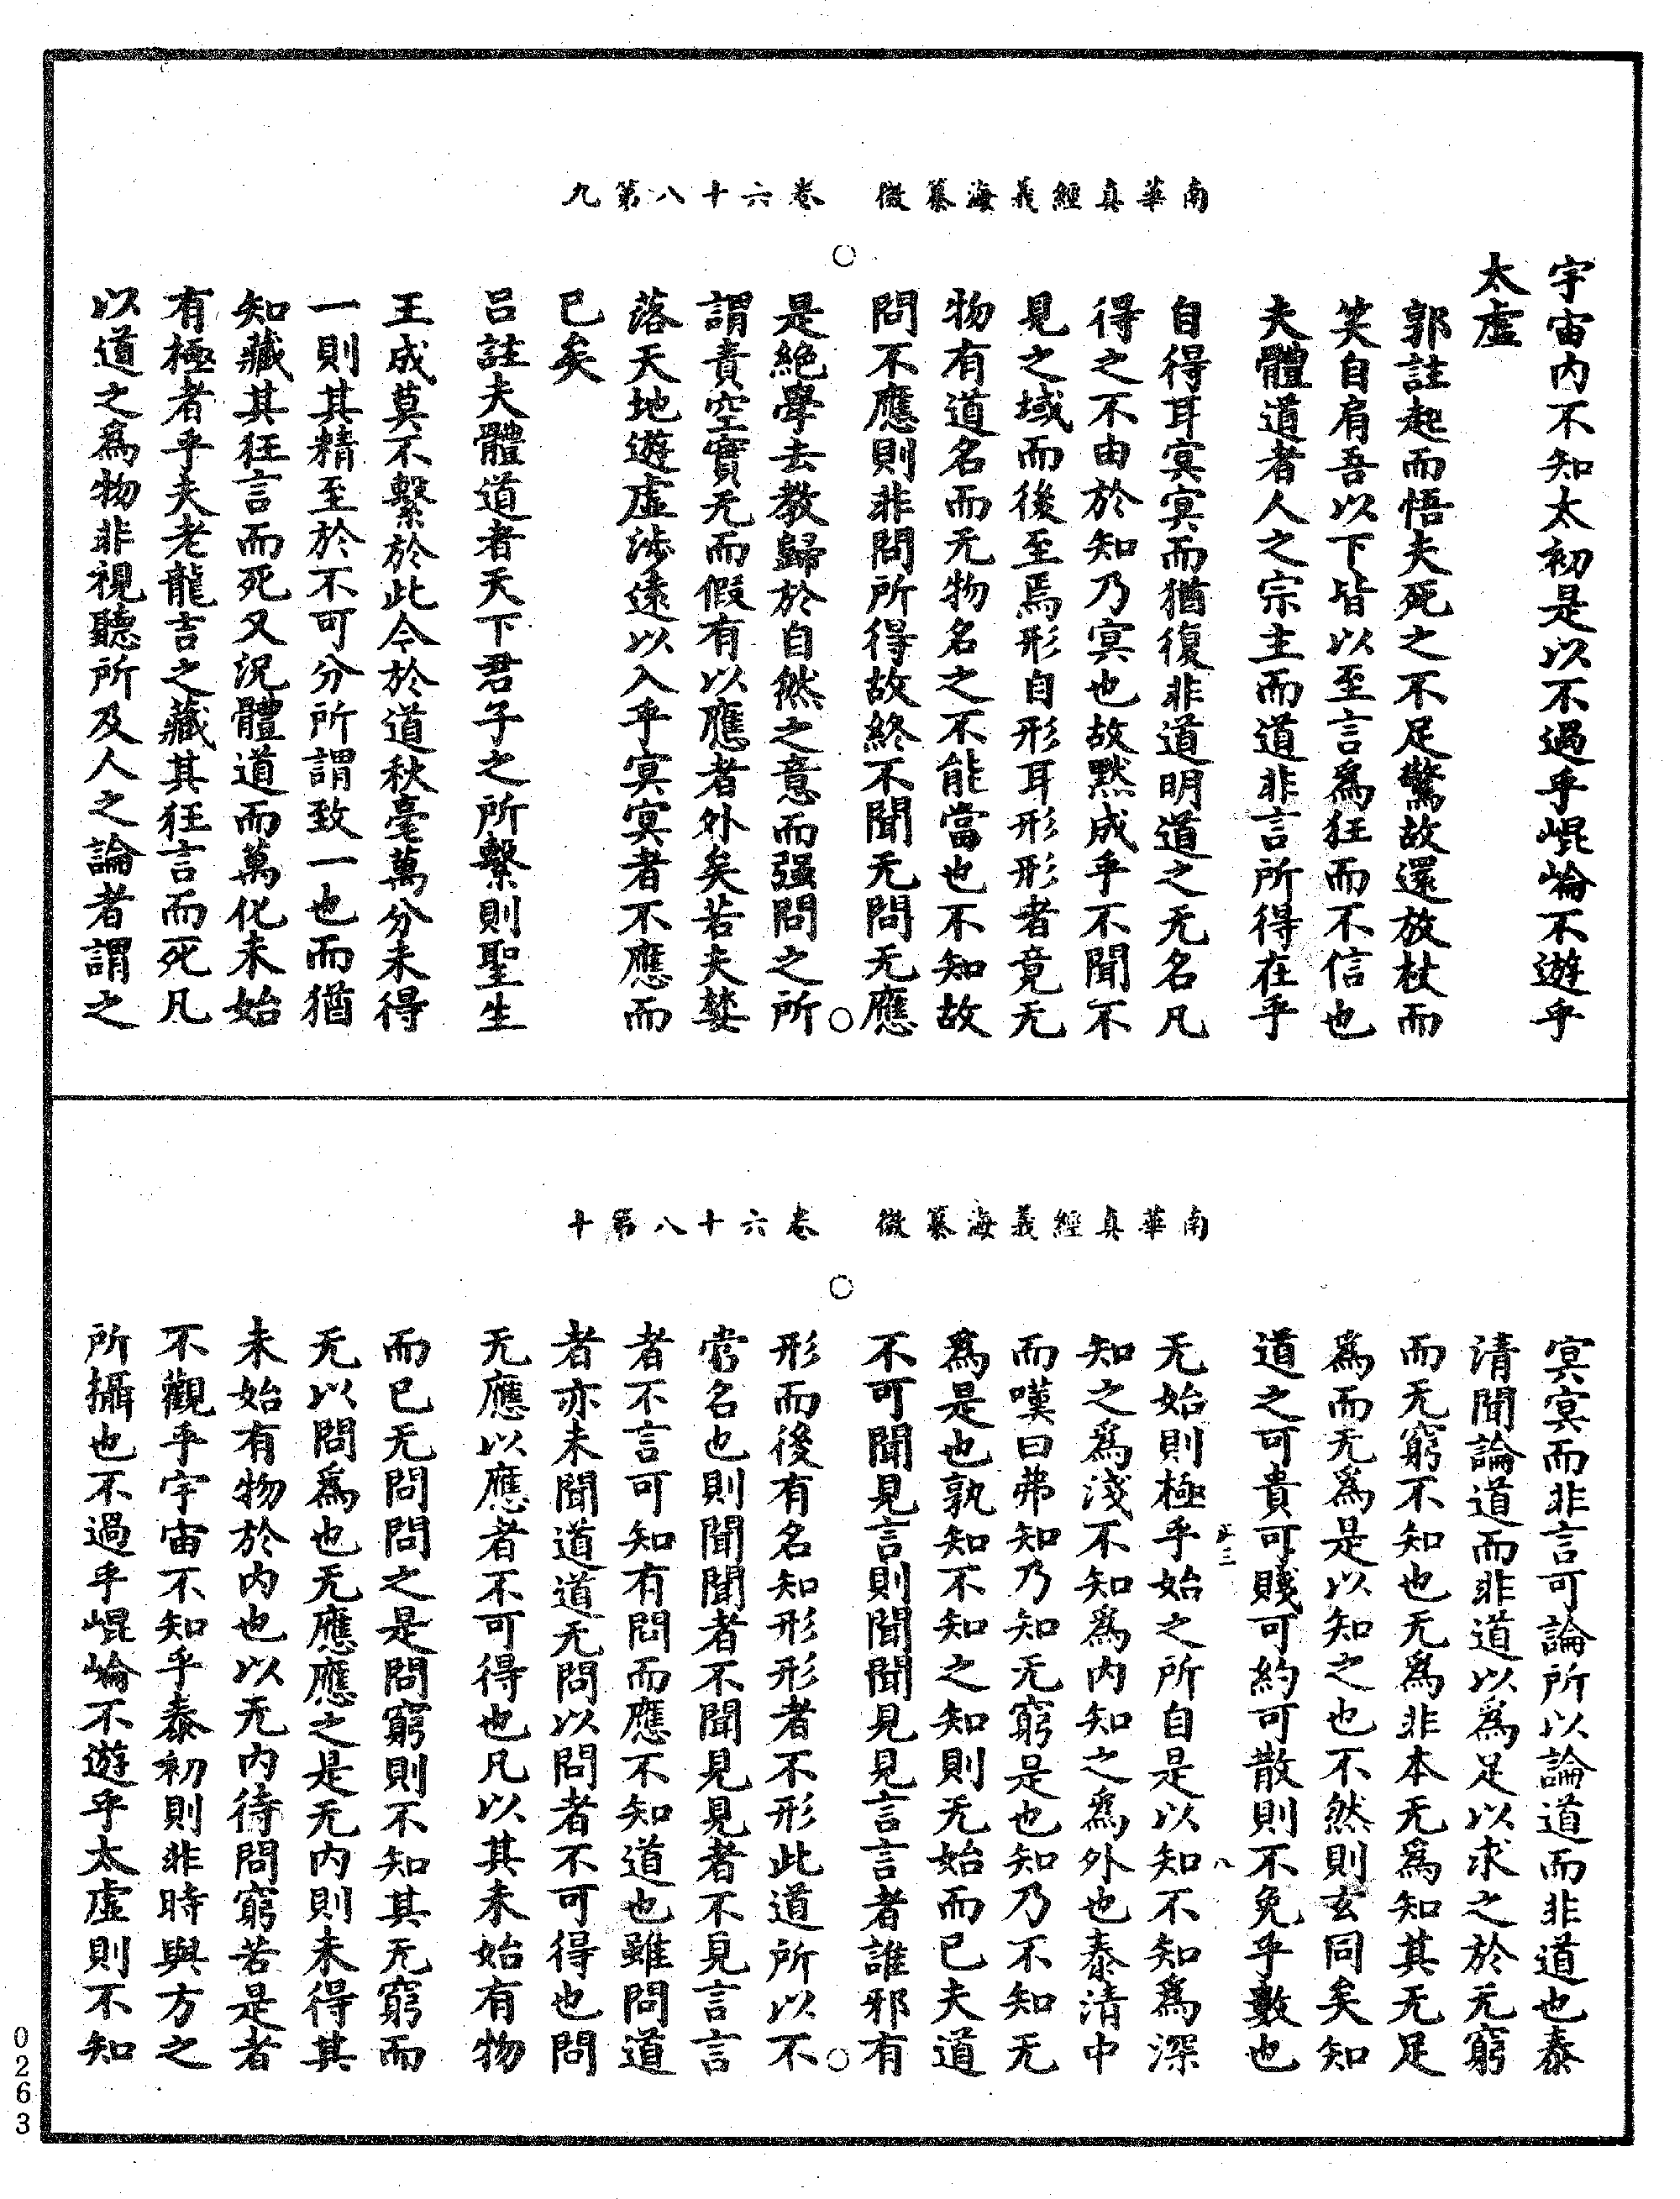 南華真經義海纂微　卷六十八第九
宇宙內不知太初是以不過乎崐崘不遊乎
太虛
郭註起而悟夫死之不足驚故還放杖而
笑自肩吾以下皆以至言爲狂而不信也
夫體道者人之宗主而道非言所得在乎
自得耳冥冥而猶復非道明道之无名凡
得之不由於知乃冥也故黙成乎不聞不
見之域而後至焉形自形耳形形者竟无
物有道名而无物名之不能當也不知故
問不應則非問所得故終不聞无問无應
是絶學去教歸於自然之意而强問之所
謂責空實无而假有以應者外矣若夫婪
落天地遊虛涉遠以入乎冥冥者不應而
已矣
呂註夫體道者天下君子之所繫則聖生
王成莫不繫於此今於道秋毫萬分未得
一則其精至於不可分所謂致一也而猶
知藏其狂言而死又況體道而萬化未始
有極者乎夫老龍吉之藏其狂言而死凡
以道之爲物非視聽所及人之論者謂之
南華真經義海纂微　卷六十八第十
冥冥而非言可論所以論道而非道也泰
清聞論道而非道以爲足以求之於无窮
而无窮不知也无爲非本无爲知其无足
爲而无爲是以知之也不然則玄同矣知
道之可貴可賤可約可散則不免乎數也
无始則極乎始之所自是以知不知爲深
知之爲淺不知爲內知之爲外也泰清中
而嘆曰弗知乃知无窮是也知乃不知无
爲是也孰知不知之知則无始而已夫道
不可聞見言則聞聞見見言言者誰邪有
形而後有名知形形者不形此道所以不
常名也則聞聞者不聞見見者不見言言
者不言可知有問而應不知道也雖問道
者亦未聞道道无問以問者不可得也問
无應以應者不可得也凡以其未始有物
而已无問問之是問窮則不知其无窮而
无以問爲也无應應之是无內則未得其
未始有物於內也以无內待問窮若是者
不觀乎宇宙不知乎泰初則非時與方之
所攝也不過乎崐崘不遊乎太虛則不知
0263